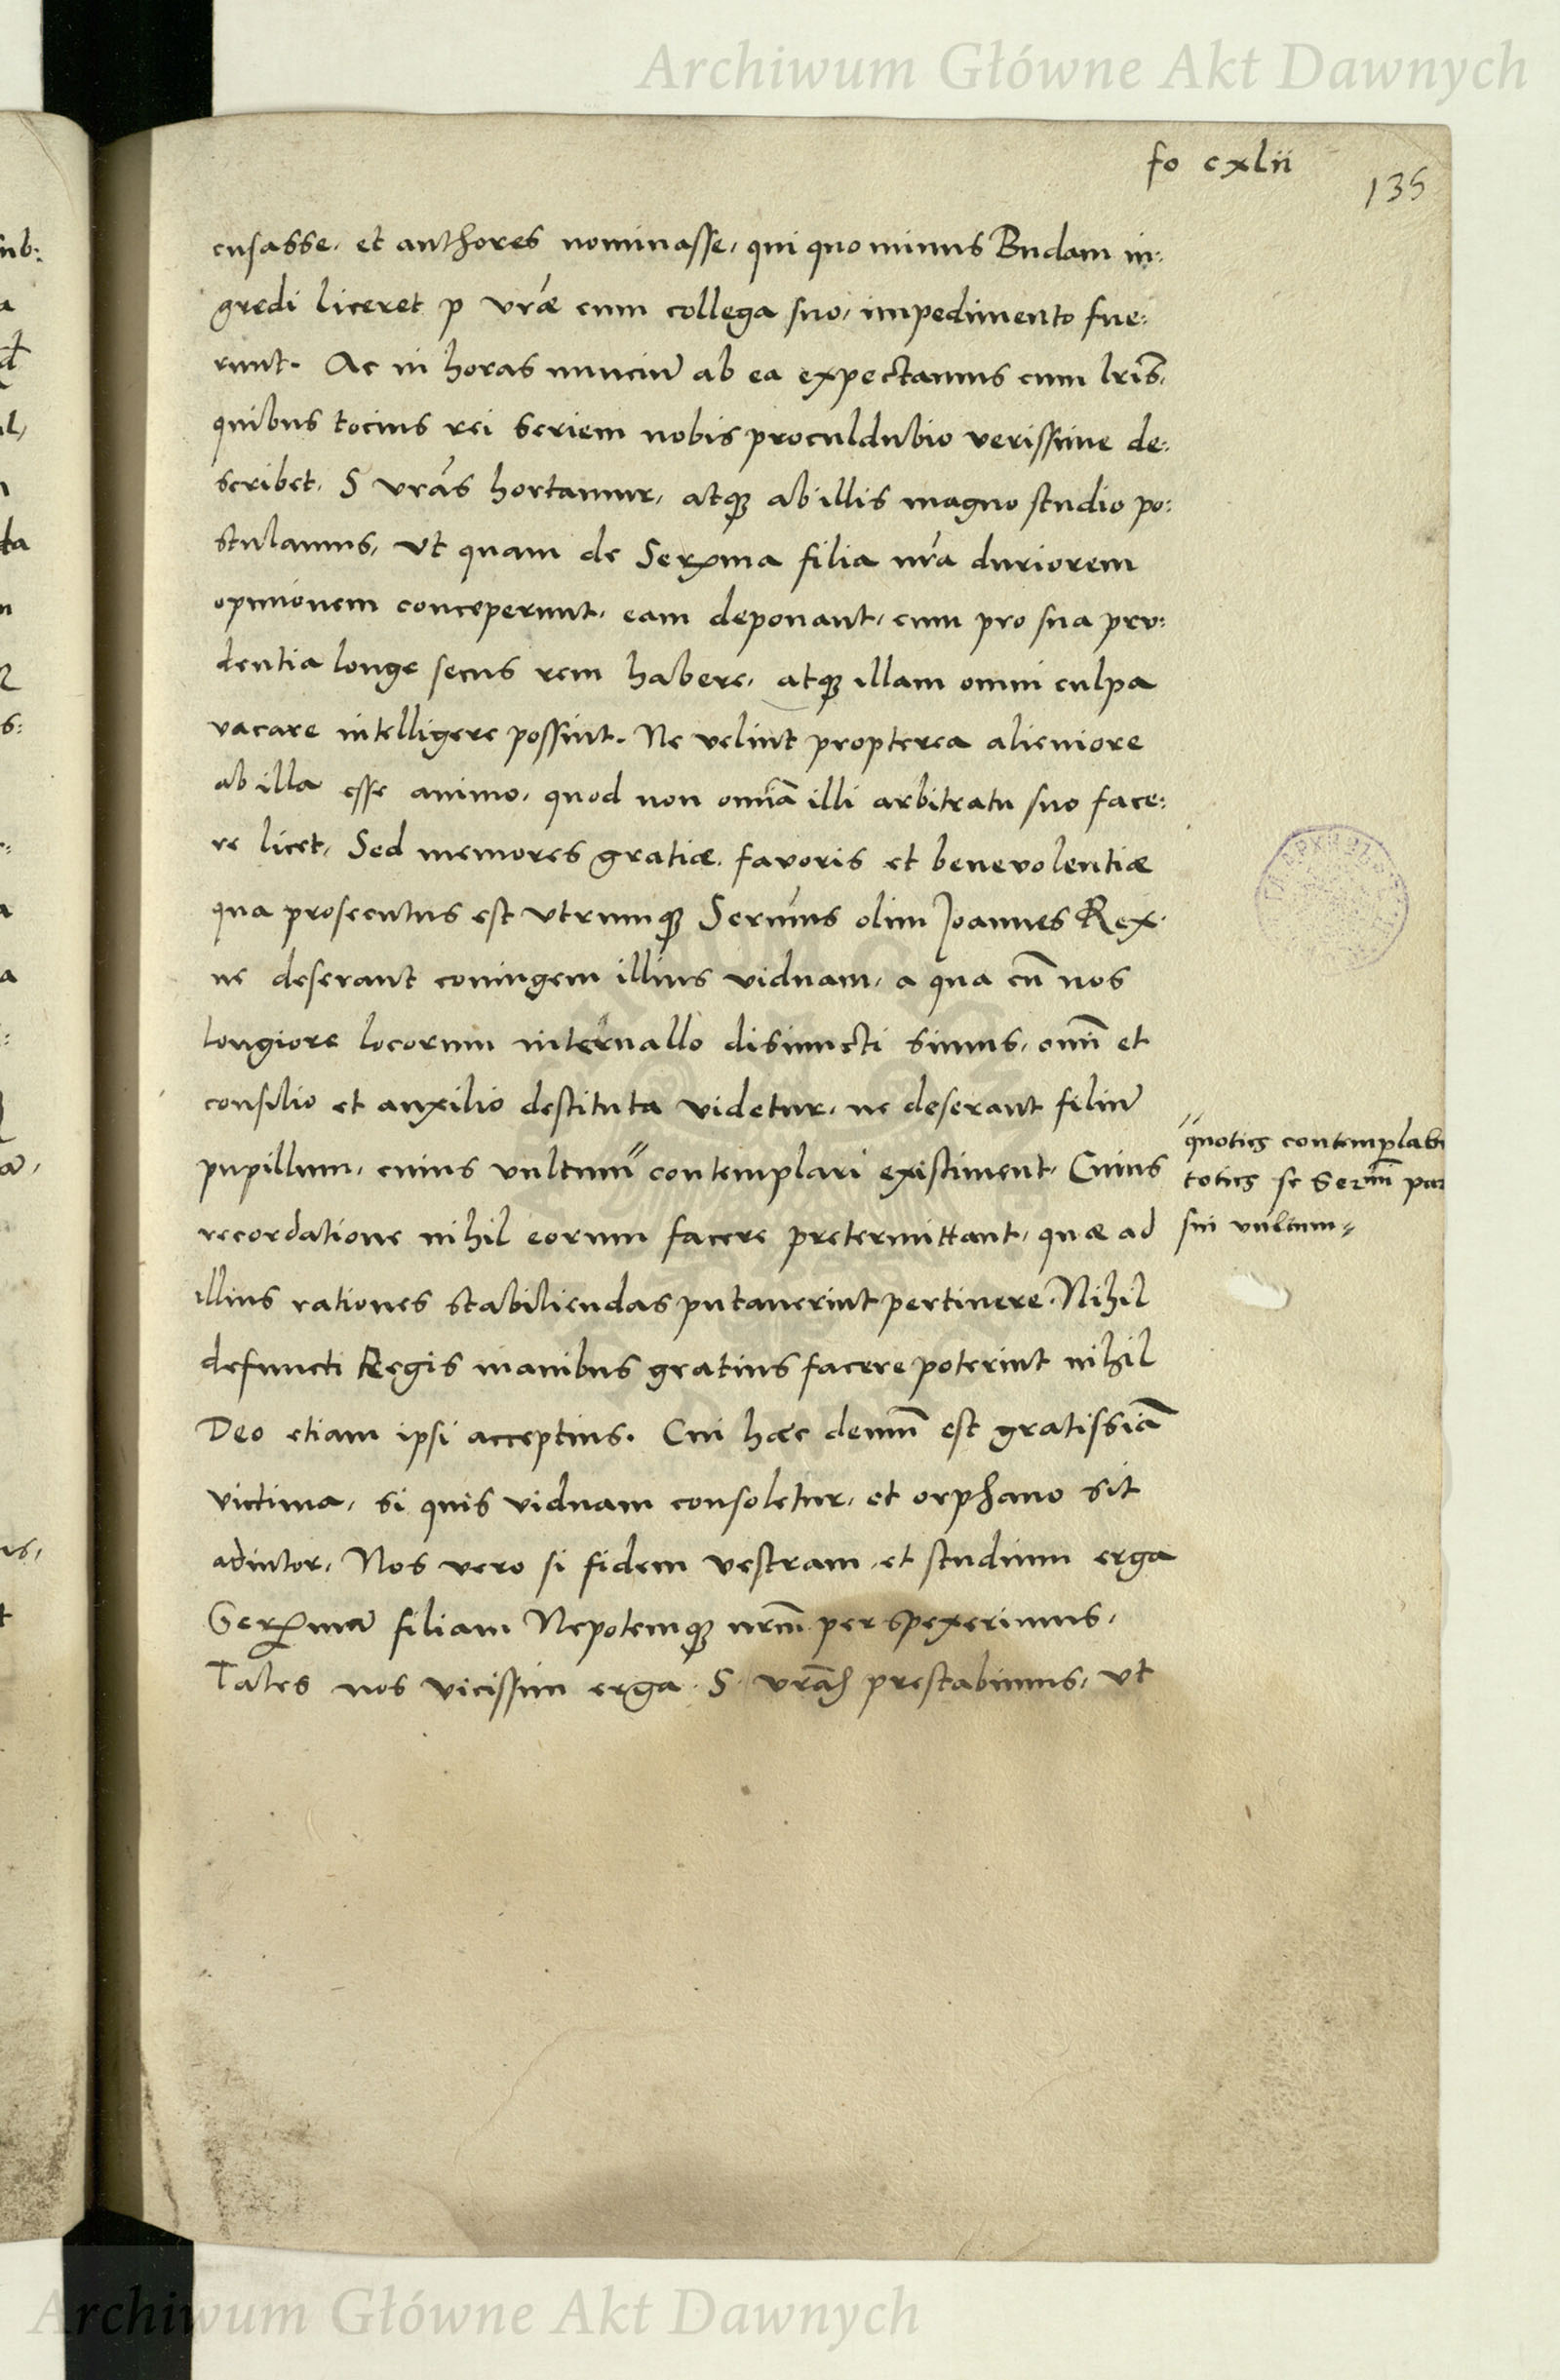 Archiwum Główne Akt Dawnych
fo cxlii
135
cusasse, et authores nominasse, qui quo minus Budam in:
gredi liceret p vrǽ cum collega suo, impedimento fue:
runt. Ac in horas nunciũ ab ea expectamus cum lrĩs,
quibus tocius rei seriem nobis proculdubio verissime de:
scribet. S vrás hortamur, atqꝫ ab illis magno studio po:
stulamus, vt quam de Serꝫma filia nrá duriorem
opinionem conceperunt, eam deponant, cum pro sua pru:
dentia longe secus rem habere, atqꝫ illam omni culpa
vacare intelligere possint. Ne velint propterea alieniore
ab illa esse animo, quod non omĩa illi arbitratu suo face:
re licet, Sed memores gratiæ, favoris et benevolentiæ
qua prosecutus est vtrumqꝫ Sermus olim Joannes Rex.
ne deserant coniugem illius viduam, a qua cũ nos
longiore locorum intervallo disiuncti simus, omĩ et
consilio et auxilio destituta videtur, ne deserant filiũ
pupillum, cuius vultum〃 contemplari existiment. Cuius
〃quoties contemplab
toties se Sermĩ
sui vultum〃
recordatione nihil eorum facere pretermittant, quæ ad
illius rationes stabiliendas putaverint pertinere. Nihil
defuncti Regis manibus gratius facere poterint nihil
Deo etiam ipsi acceptius. Cui hæc demũ est gratissiã
victima, si quis viduam consoletur, et orphano sit
adiutor, Nos vero si fidem vestram et studium erga
Serꝫmã filiam Nepotemqꝫ nrm̃ perspexerimus,
Tales nos vicissim erga S. vrãs prestabimus, vt
Archiwum Główne Akt Dawnych